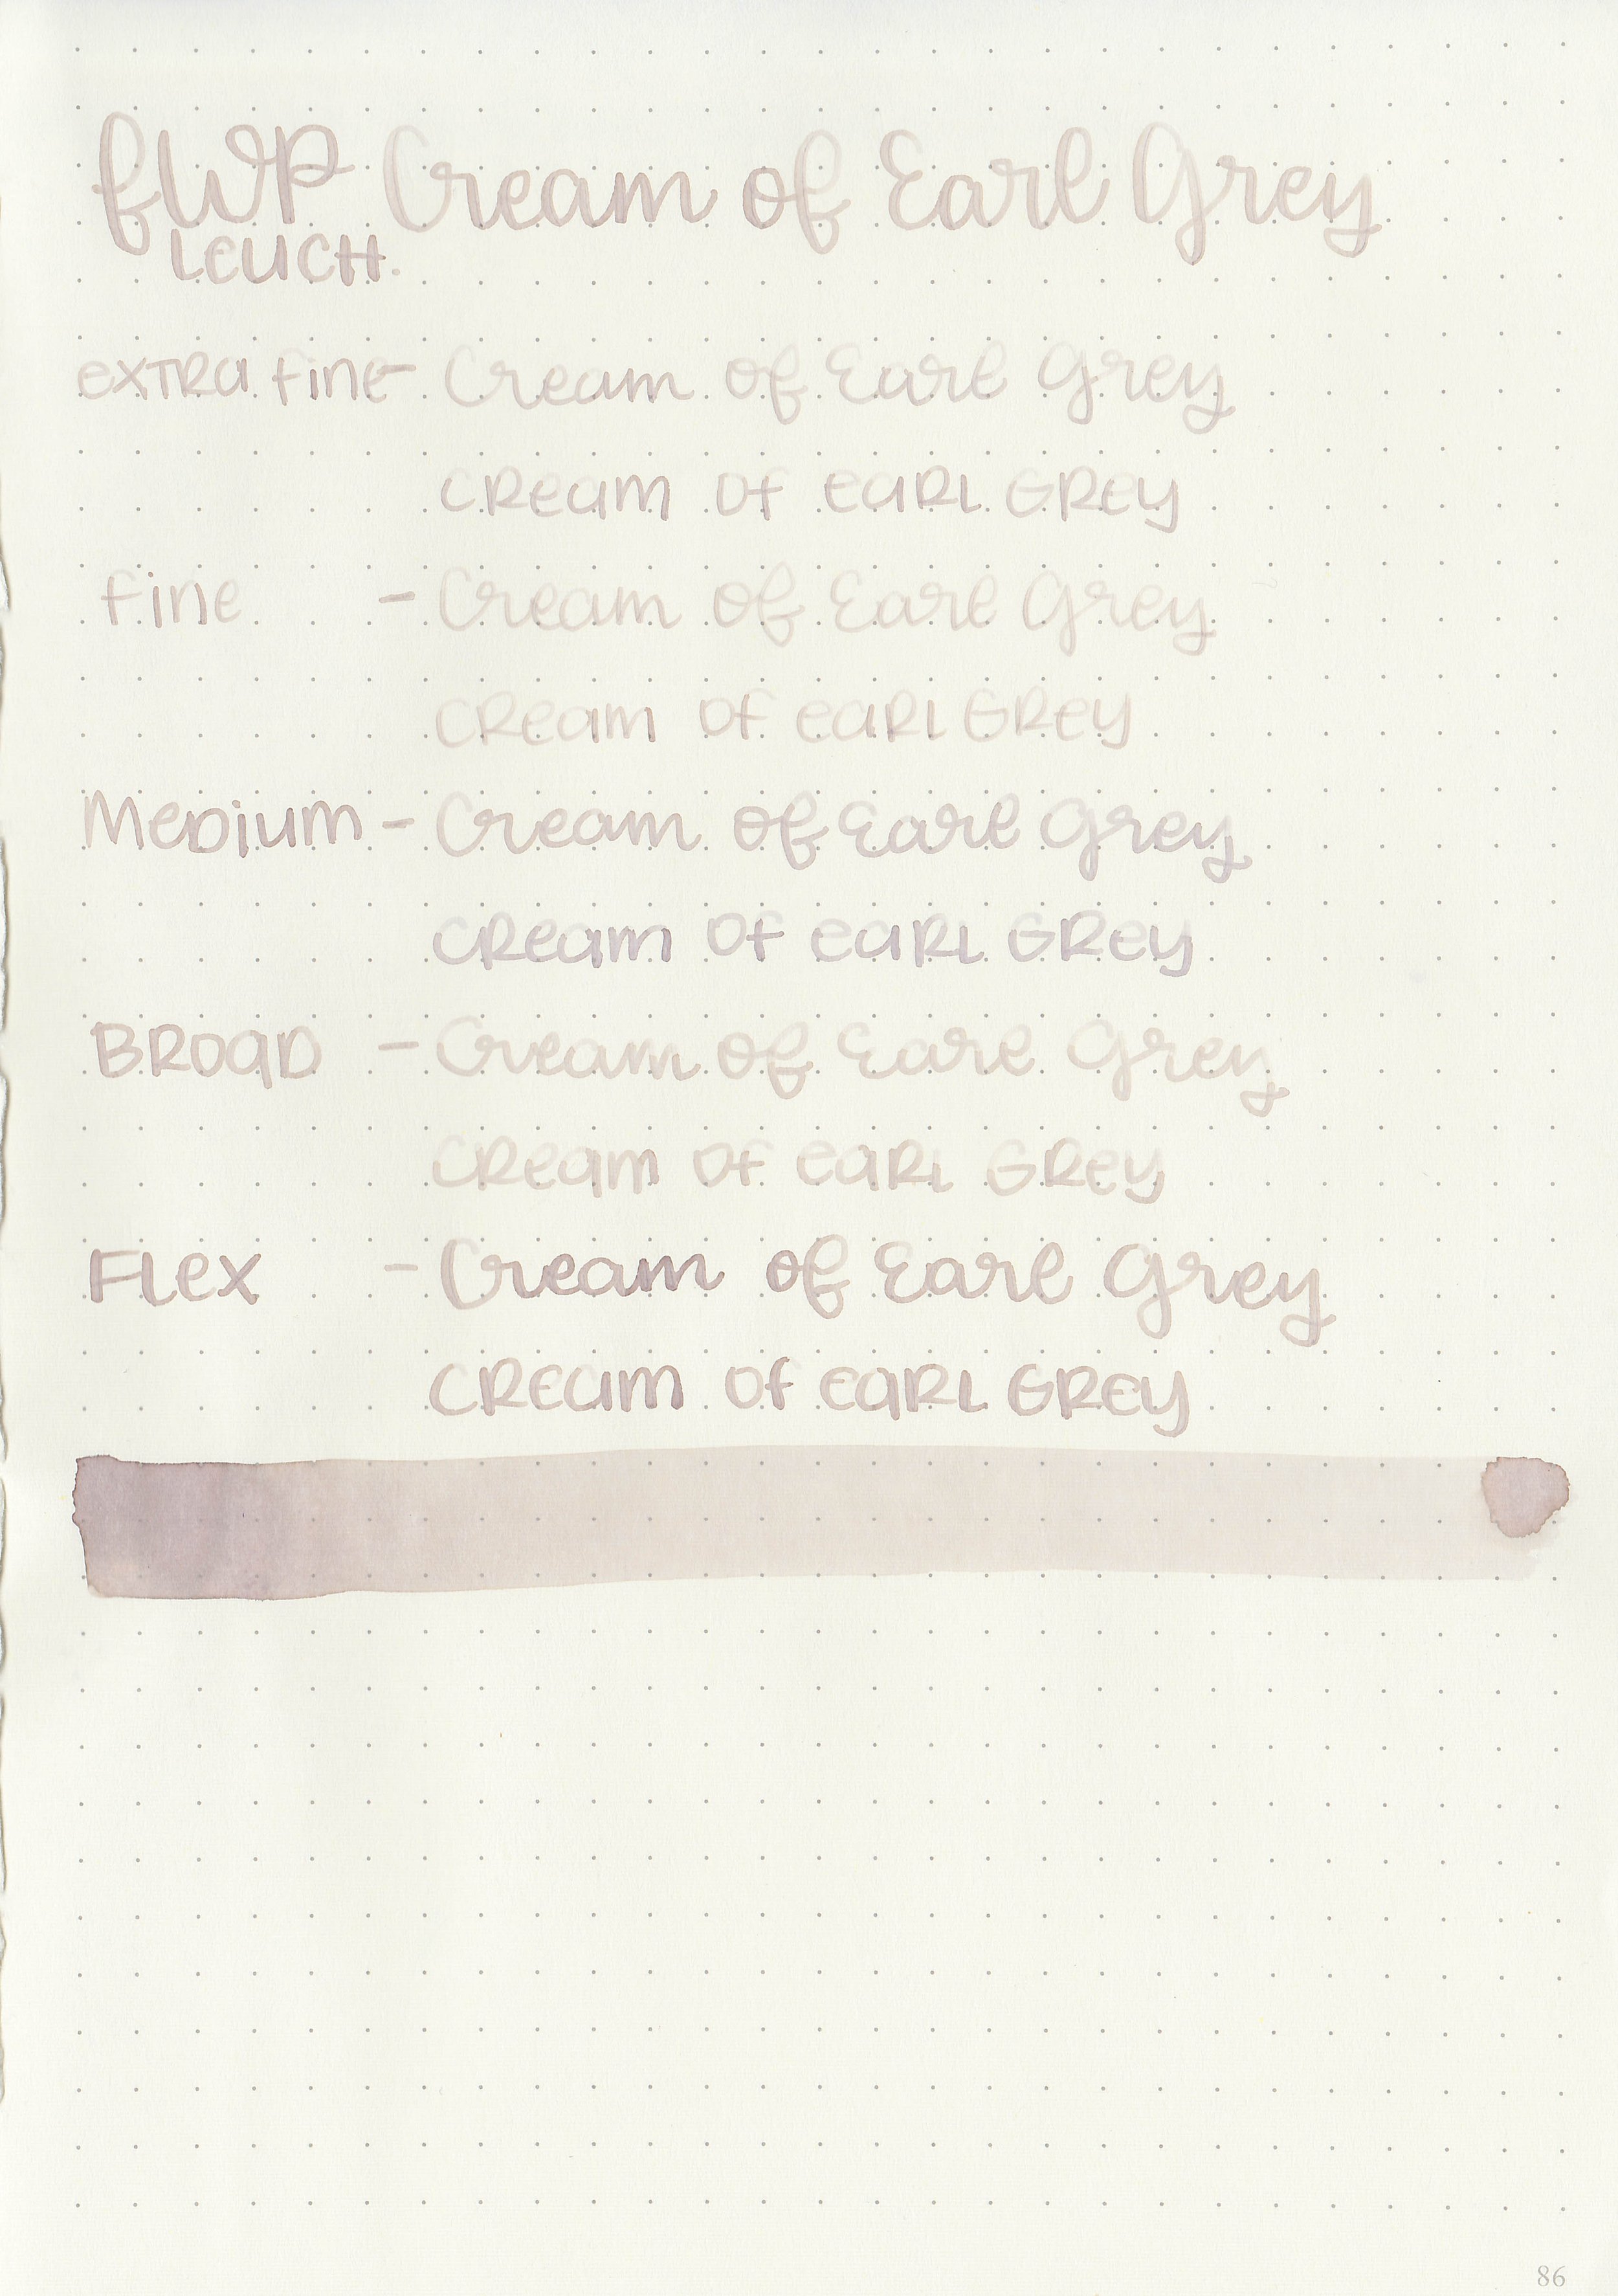 fWP Cream of Earl Grey
LEUCH.
extra fine - Cream of Earl Grey
Cream of Earl Grey
fine - Cream of Earl Grey
Cream of Earl Grey
Medium - Cream of Earl Grey
Cream of Earl Grey
Broad - Cream of Earl Grey
Cream of Earl Grey
Flex - Cream of Earl Grey
Cream of Earl Grey
86